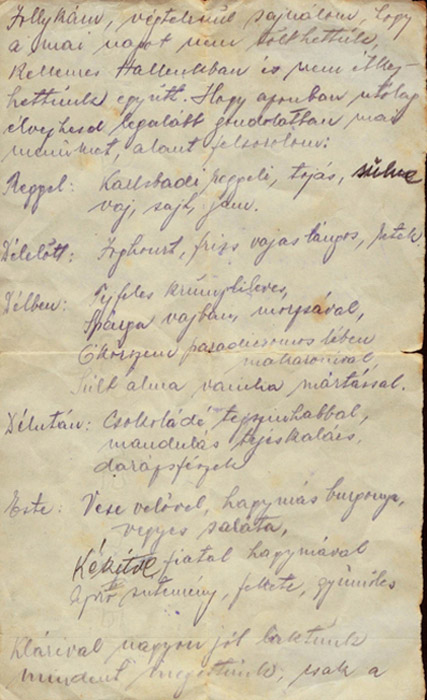 Jollykám, végtelenül sajnálom, hogy
a mai napot nem tölthettük
kellemes Hallenkban és nem étkez-
hettünk együtt. Hogy azonban utólag
élvezhesd legalább gondolatban mai
menünket, alant felsorolom:
Reggel: Karlsbadi reggeli, tojás,
vaj, sajt, jam.
Délelőtt: Joghourt, friss vajas lángos, retek
Délben: Tejfeles krumplileves,
Spárga vajban, morzsával,
Ökörszem paradicsomos lében
makaronival,
Sült alma vanilia mártással.
Délután: Csokoládé tejszinhabbal,
mandulás tejeskalács,
darázsfészek
Este: Vese velővel, hagymás burgonya,
vegyes saláta,
fiatal hagymával
Apró sütemény, fekete, gyümölcs
Klárival nagyon jól laktunk
mindent megettünk, csak a